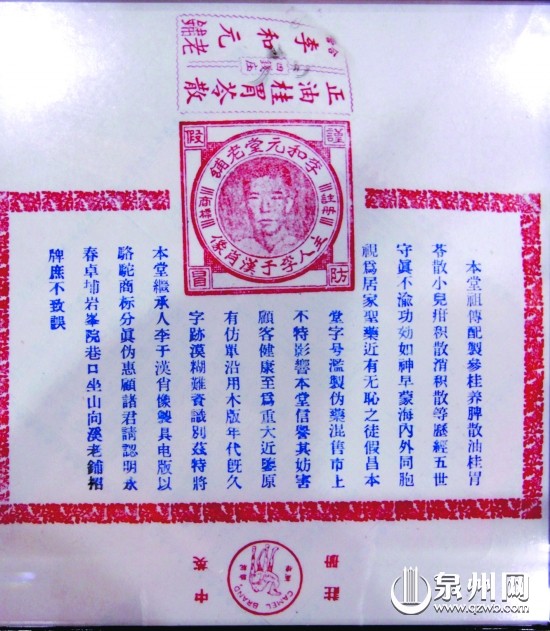 李和元老鋪
正油桂胃苓散
李和元堂老鋪
註冊
商標
主人李于漢肖像
謹防假冒
本堂祖傳配製參桂养脾散油桂胃
苓散小兒疳积散消积散等歷經五世
守眞不渝功効如神早蒙海內外同胞
視爲居家聖藥近有无恥之徒假昌本
堂字号濫製伪藥混售市上
不特影響本堂信譽其妨害
顧客健康至爲重大近鑒原
有仿單沿用木版年代旣久
字跡漠糊難資識別茲特將
本堂継承人李于漢肖像製具电版以
駱駝商标分眞伪惠顧諸君請認明永
春卓埔岩峯院巷口坐山向溪老鋪招
牌庶不致誤
註冊
中英
CAMEL BRAND
泉州网
www.qzwb.com